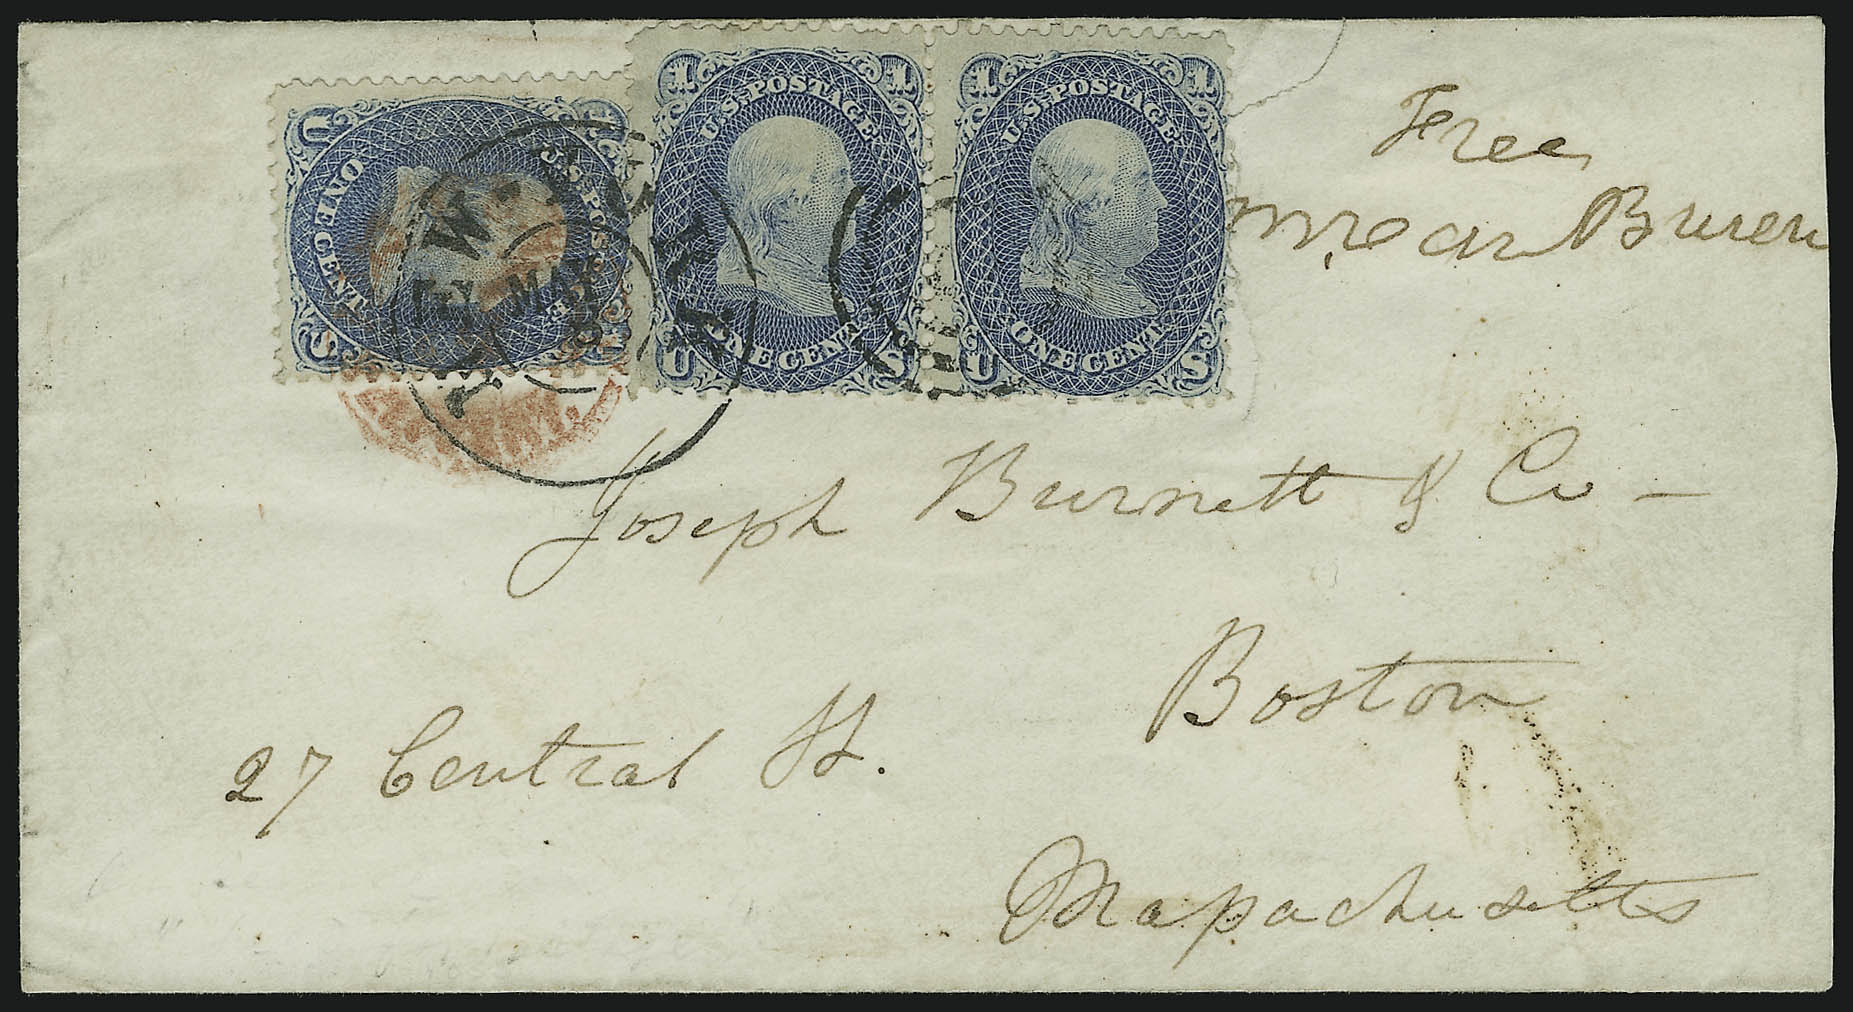 1 1
U.S. POSTAGE
ONE CENT
U S
1 1
U.S. POSTAGE
ONE CENT
U S
U.S. POSTAGE
ONE CENT
U S
NEW-YORK
MAY
Free
Van Buren
Joseph Burnett & Co –
Boston
27 Central St.
Massachusetts